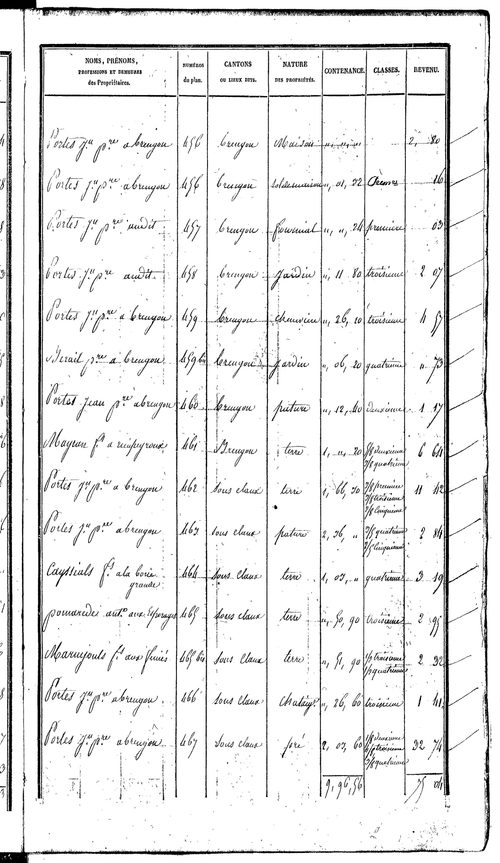 NOMS, PRÉNOMS, PROFESSIONS ET DEMEURES des Propriétaires. NUMÉROS du plan. CANTONS OU LIEUX DITS. NATURE DES PROPRIÉTÉS. CONTENANCE. CLASSES. REVENU.
Portes jn pre a brengou 456 brengou Maison „ „ „ 2, 80
Portes jn pre a brengou 456 brengou sol de maison „, 01, 32 16
Portes jn pre audit 457 brengou „, „, 24 première 03
Portes jn pre audit 458 brengou Jardin „, 11 80 troisième 2 07
Portes jn pre a brengou 459 brengou „, 26, 20 troisième 4 57
pre a brengou 459 bis brengou Jardin „, 06, 20 quatrième „ 73
Portes jean pre a brengou 460 brengou pature „, 12, 40 deuxième 1 17
461 Brengou terre 1, „, 20 deuxième quatrième 6 64
Portes jn pre a brengou 462 sous claux terre 1, 66, 30 première troisième cinquième 11 42
Portes jn pre a brengou 463 sous claux pature 2, 36, „ quatrième cinquième 2 84
Cayssials fs a la borie grande 464 sous claux terre 1, 03, „ quatrième 3 19
pomarede 465 sous claux terre „, 50, 90 troisième 2 95
465 bis sous claux terre „, 51, 90 1/2 troisième 1/2 quatrième 2 32
Portes jn pre a brengou 466 sous claux „, 26, 60 troisième 1 41
Portes jn pre a brengou 467 sous claux pré 2, 03, 60 deuxième troisième quatrième 32 74
9, 96, 56 75 04